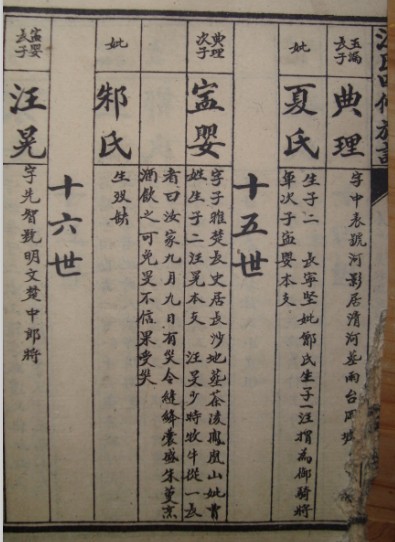 玉滿長子
典理
字中表號河影居清河葬雨台岡
妣
夏氏
生子二 長寧堅妣鄭氏生子一汪摜為御騎將
軍次子寍嬰本支
十五世
典理次子
寍嬰
字子雅楚長史居長沙地葬茶陵鳳凰山妣曹
姓生子二汪晃本支 汪旻少時牧牛從一長
者曰汝家九月九日有災令縫絳囊盛茱萸京
酒飲之可免旻不信果受災
妣
邾氏
生双妹
十六世
寍嬰長子
汪晃
字先智敷明文楚中郎將